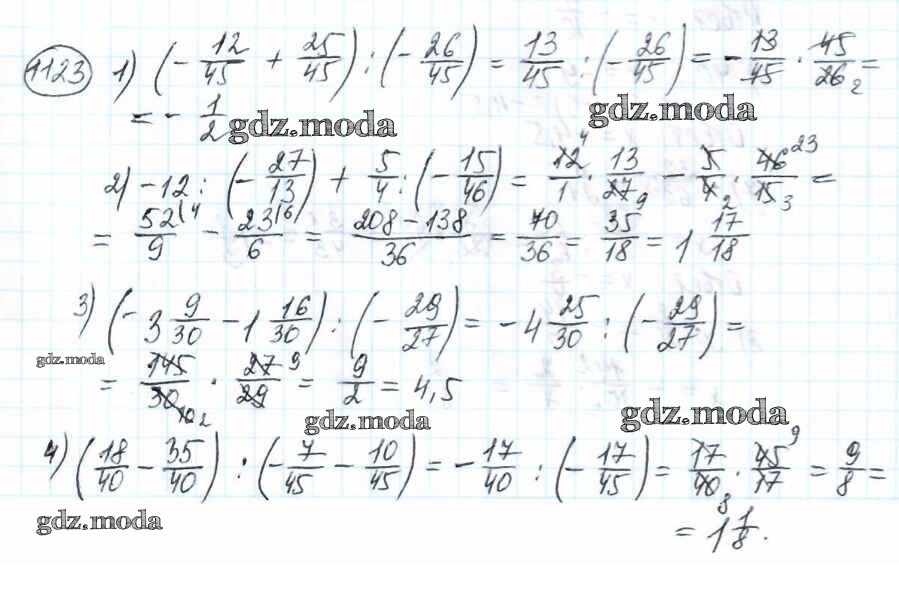 1123 1) (- 12/45 + 25/45) : (- 26/45) = 13/45 : (- 26/45) = - 13/45 · 45/26 2 =
= - 1/2 gdz.moda gdz.moda
2) -12 : (- 27/13) + 5/4 : (- 15/46) = 12 4/1 · 13/27 9 - 5/4 2 · 46 23/15 3 =
= 52 |4/9 - 23 |6/6 = 208 - 138/36 = 70/36 = 35/18 = 1 17/18
3) (- 3 9/30 - 1 16/30) : (- 29/27) = - 4 25/30 : (- 29/27) =
gdz.moda
= 145/30 10 2 · 27 9/29 = 9/2 = 4,5
gdz.moda gdz.moda
4) (18/40 - 35/40) : (- 7/45 - 10/45) = - 17/40 : (- 17/45) = 17/40 8 · 45 9/17 = 9/8 =
gdz.moda
= 1 1/8.